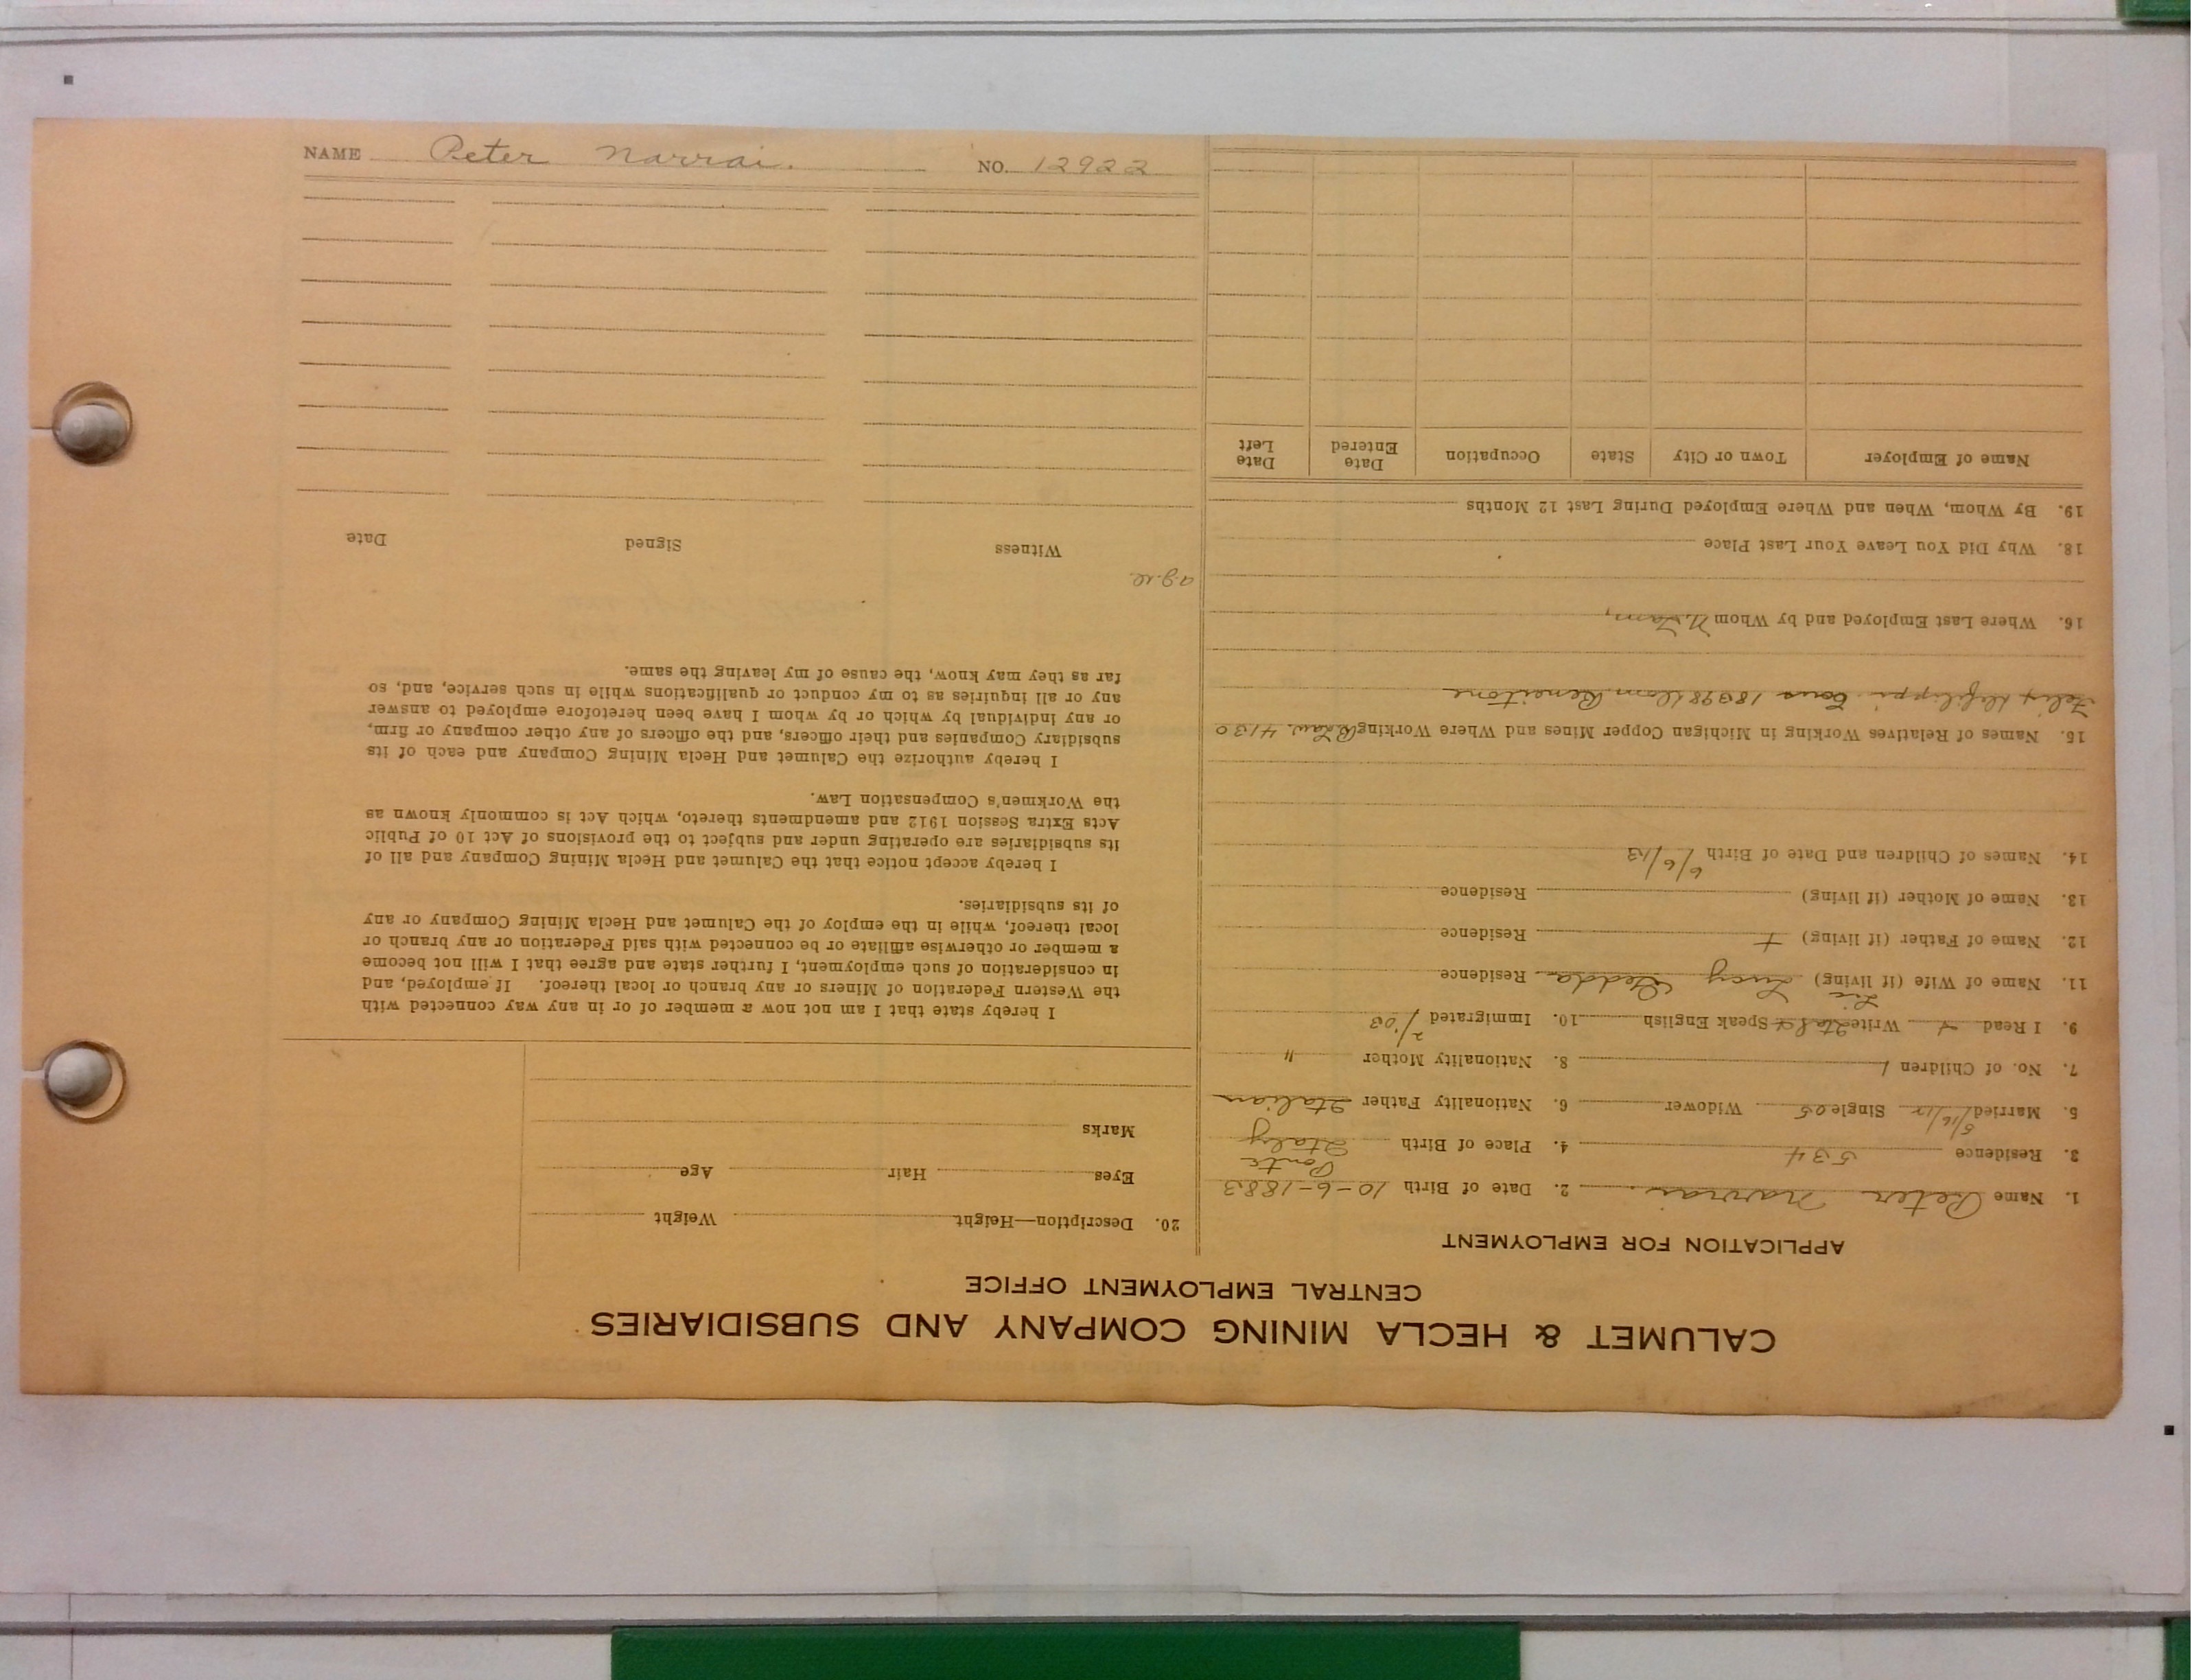 NAME Peter Narrai. NO. 12922
CALUMET & HECLA MINING COMPANY AND SUBSIDIARIES
CENTRAL EMPLOYMENT OFFICE
APPLICATION FOR EMPLOYMENT
1. Name Peter Narrai. 2. Date of Birth 10-6-1883
3. Residence 534 4. Place of Birth Ponte Italy
5. Married 5/16/12 Single 05 Widower 6. Nationality Father Italian
7. No. of Children 1 8. Nationality Mother "
9. I Read Write Ital Speak English 10. Immigrated 2/03
11. Name of Wife (if living) Lucy Residence
12. Name of Father (if living) Residence
13. Name of Mother (if living) Residence
14. Names of Children and Date of Birth 6/6/13
15. Names of Relatives Working in Michigan Copper Mines and Where Working B Law. 4130
Felix 18398
16. Where Last Employed and by Whom
18. Why Did You Leave Your Last Place
19. By Whom, When and Where Employed During Last 12 Months
Name of Employer Town or City State Occupation Date Entered Date Left
20. Description—Height Weight
Eyes Hair Age
Marks
I hereby state that I am not now a member of or in any way connected with
the Western Federation of Miners or any branch or local thereof. If employed, and
in consideration of such employment, I further state and agree that I will not become
a member or otherwise affiliate or be connected with said Federation or any branch or
local thereof, while in the employ of the Calumet and Hecla Mining Company or any
of its subsidiaries.
I hereby accept notice that the Calumet and Hecla Mining Company and all of
its subsidiaries are operating under and subject to the provisions of Act 10 of Public
Acts Extra Session 1912 and amendments thereto, which Act is commonly known as
the Workmen's Compensation Law.
I hereby authorize the Calumet and Hecla Mining Company and each of its
subsidiary Companies and their officers, and the officers of any other company or firm,
or any individual by which or by whom I have been heretofore employed to answer
any or all inquiries as to my conduct or qualifications while in such service, and, so
far as they may know, the cause of my leaving the same.
Witness Signed Date